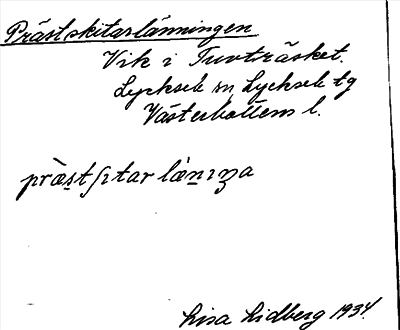 Prästskitarlänningen
Vik i Tuvträsket.
Lycksele sn, Lycksele tg
Västerbottens l.
præ̀stʃɪtarlæ̀nɪŋa
Lisa Lidberg 1934.